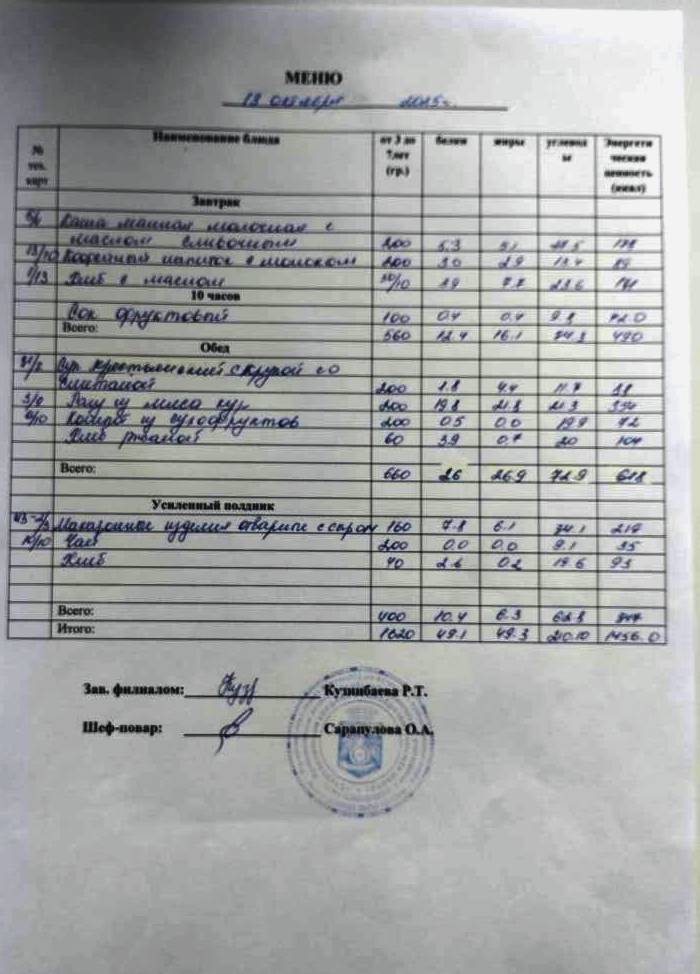 МЕНЮ
13 октября 2025 г.
№ тех. карт Наименование блюда от 3 до 7лет (гр.) белки жиры углеводы Энергетическая ценность (ккал)
Завтрак
Каша манная молочная с
маслом сливочным 200 5.3 5.1
13/10 Кофейный напиток с молоком 200 3.0 2.9 13.4
1/13 Хлеб с маслом 30/10 7.7 23.6
10 часов
Сок фруктовый 100 0.4 0.4 9.8 42.0
Всего: 560 12.4 16.1 74.3 490
Обед
Суп крестьянский с крупой со
сметаной 200 1.8 4.4 11.7
Рагу из мяса кур 200 19.8 21.8 21.3
Компот из сухофруктов 200 0.5 0.0 19.9
Хлеб ржаной 60 3.9 0.7 20 104
Всего: 660 26 26.9 72.9 618
Усиленный полдник
Макаронные изделия отварные с сыром 160 7.8 6.1 34.1 219
Чай 200 0.0 0.0 9.1 35
Хлеб 40 2.6 0.2 19.6 93
Всего: 400 10.4 6.3 62.8
Итого: 1620 49.1 49.3 210.0 1456.0
Зав. филиалом: Кузинбаева Р.Т.
Шеф-повар: Сарапулова О.А.